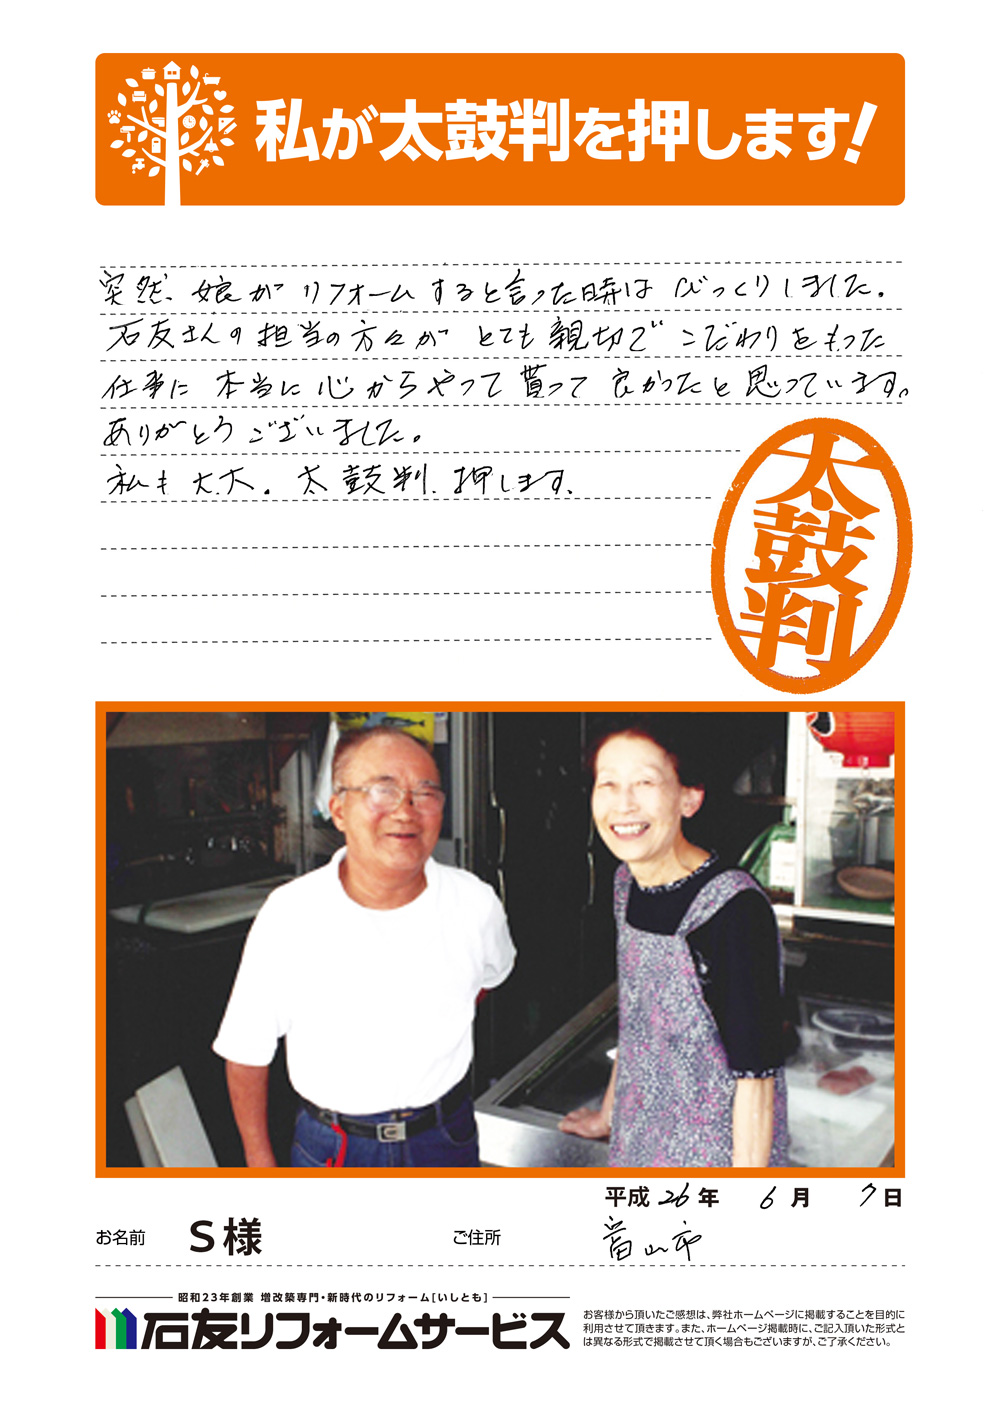 私が太鼓判を押します!
突然、娘がリフォームすると言った時はびっくりしました。
石友さんの担当の方々がとても親切でこだわりをもった
仕事に本当に心からやって貰って良かったと思っています。
ありがとうございました。
私も大大。太鼓判、押します。
太鼓判
平成26年 6月 7日
お名前 S様 ご住所 富山市
昭和23年創業 増改築専門・新時代のリフォーム[いしとも]
石友リフォームサービス
お客様から頂いたご感想は、弊社ホームページに掲載することを目的に
利用させて頂きます。また、ホームページ掲載時に、ご記入頂いた形式と
は異なる形式で掲載させて頂く場合もございますが、ご了承ください。